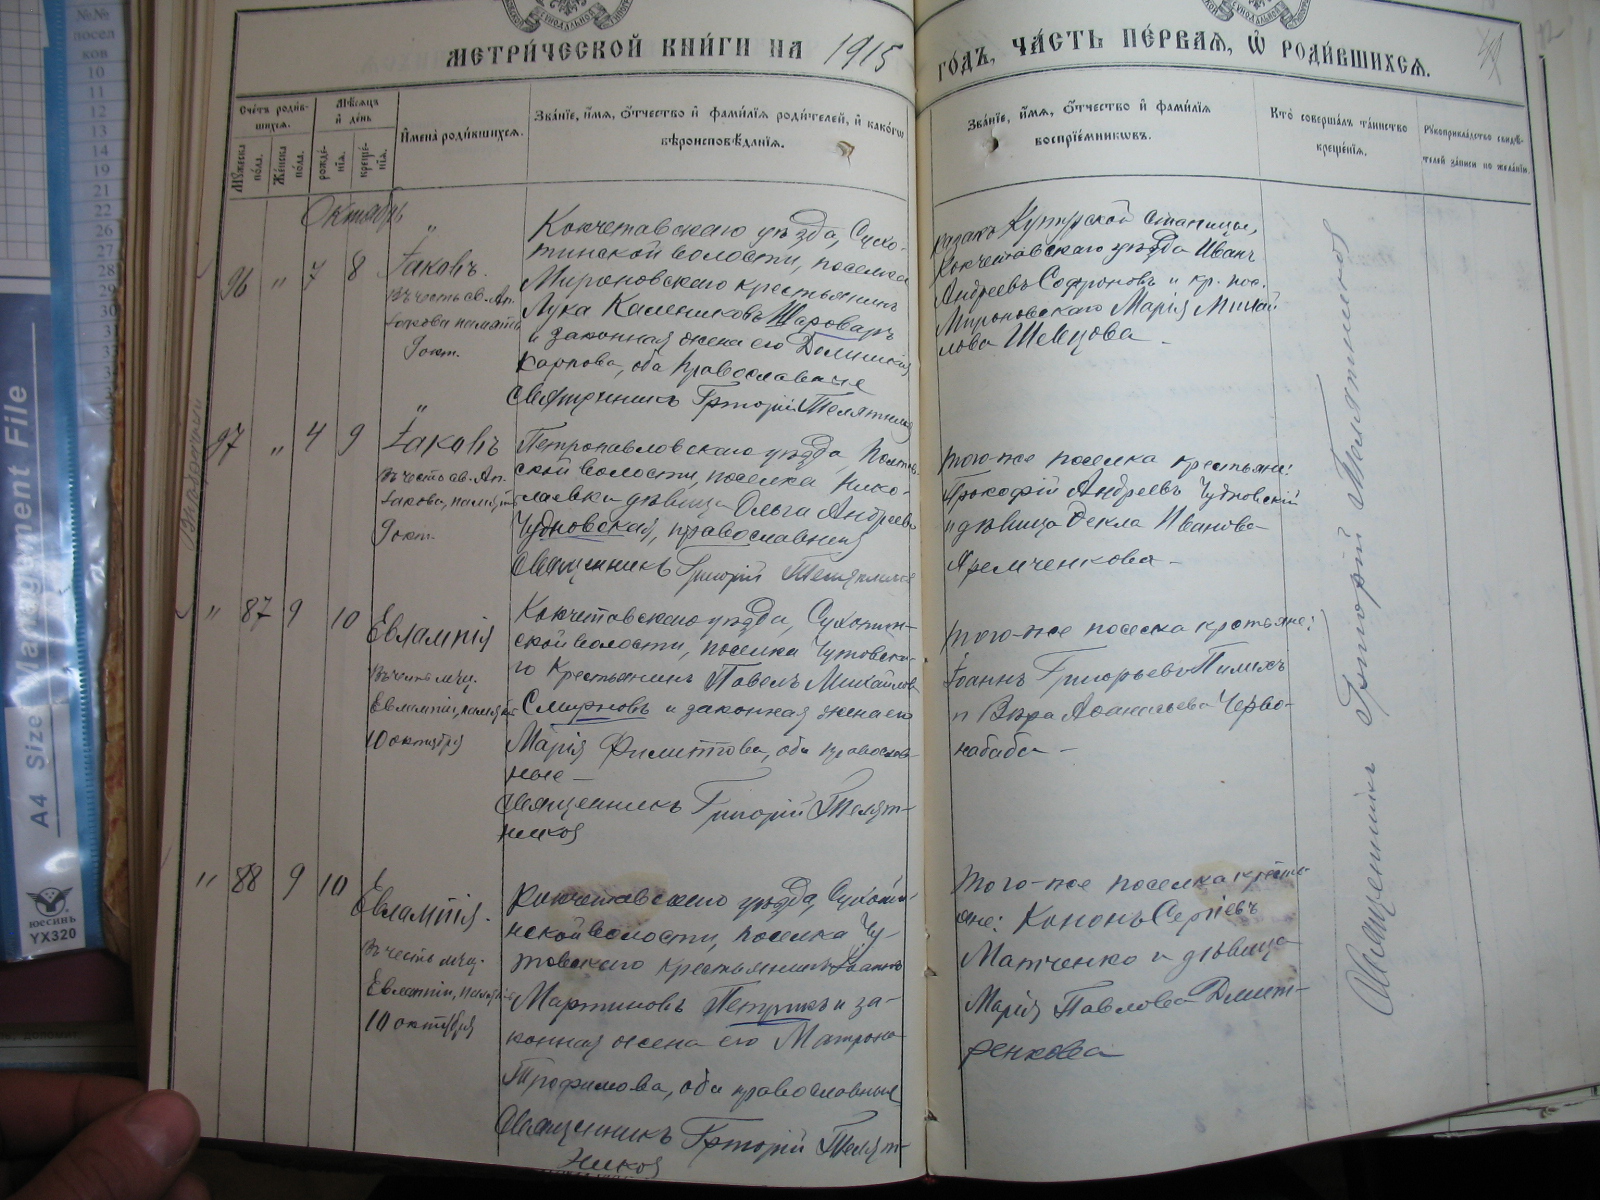 МЕТРИ́ЧЕСКОЙ КНИ́ГИ НА 1915 ГО́ДЪ, ЧА́СТЬ ПЕ́РВАЯ, Ѿ РОДИ́ВШИХСЯ.
Сче́тъ роди́в-
шихся.
Му́жеска
по́ла.
Же́нска
по́ла.
Мѣ́сяцъ
и де́нь
рожде́-
нія.
креще́-
нія.
Имена̀ роди́вшихся.
Зва́ніе, и́мя, о́тчество и фами́лія роди́телей, и како́гѡ
вѣроисповѣ́данія.
Зва́ніе, и́мя, о́тчество и фами́лія
воспріе́мниковъ.
Кто̀ соверша́лъ та́инство
креще́нія.
Рукоприкла́дство свидѣ́-
телей за́писи по жела́нію.
Октябрь
96 " 7 8
Іаковъ.
Въ честь св. Ап.
Іакова память
9 окт.
Кокчетавскаго уѣзда, Сухо-
тинской волости, поселка
Мироновскаго крестьянинъ
Лука Калениковъ Шароваръ
и законная жена его
Карпова, оба православные
Священникъ Григорій Телятников
казакъ станицы,
Кокчетавскаго уѣзда Иванъ
Андреевъ Софроновъ и кр. пос.
Мироновскаго Марія Михай
лова Шевцова
97 " 4 9
Іаковъ
Въ честь св. Ап.
Іакова, память
9 окт.
Петропавловскаго уѣзда, Полтав
ской волости, поселка Нико-
лаевки дѣвица Ольга Андреева
Чудновская, православная
Священникъ Григорій Телятников
того-же поселка крестьяне:
Прокофій Андреевъ Чудновскій
и дѣвица Фекла Иванова
Яремченкова
" 87 9 10
Евлампія
Въ честь мчц.
Евлампіи, память
10 октября
Кокчетавскаго уѣзда, Сухотин-
ской волости, поселка Чутовска-
го крестьянинъ Павелъ Михайлов
Смирновъ и законная жена его
Марія Филиппова, оба православ-
ные
Священникъ Григорій Телят-
ников
того-же поселка крестьяне:
Іоаннъ Григорьевъ
и Вѣра Афанасьева Черво-
кабаба
" 88 9 10
Евлампія.
Въ честь мчц.
Евлампіи, память
10 октября
Кокчетавскаго уѣзда, Сухоти-
нской волости, поселка Чу-
товскаго крестьянинъ Іоаннъ
Мартиновъ и за-
конная жена его Матрона
Трофимова, оба православные
Священникъ Григорій Телят-
ников
того-же поселка крестья-
не: Кононъ Сергіевъ
Матченко и дѣвица
Марія Павлова Дмит-
ренкова
Священникъ Григорій Телятников
№№
посел
ков
10
11
12
13
14
19
21
22
26
27
28
29
30
A4 Size Management File
юесинъ
YX320